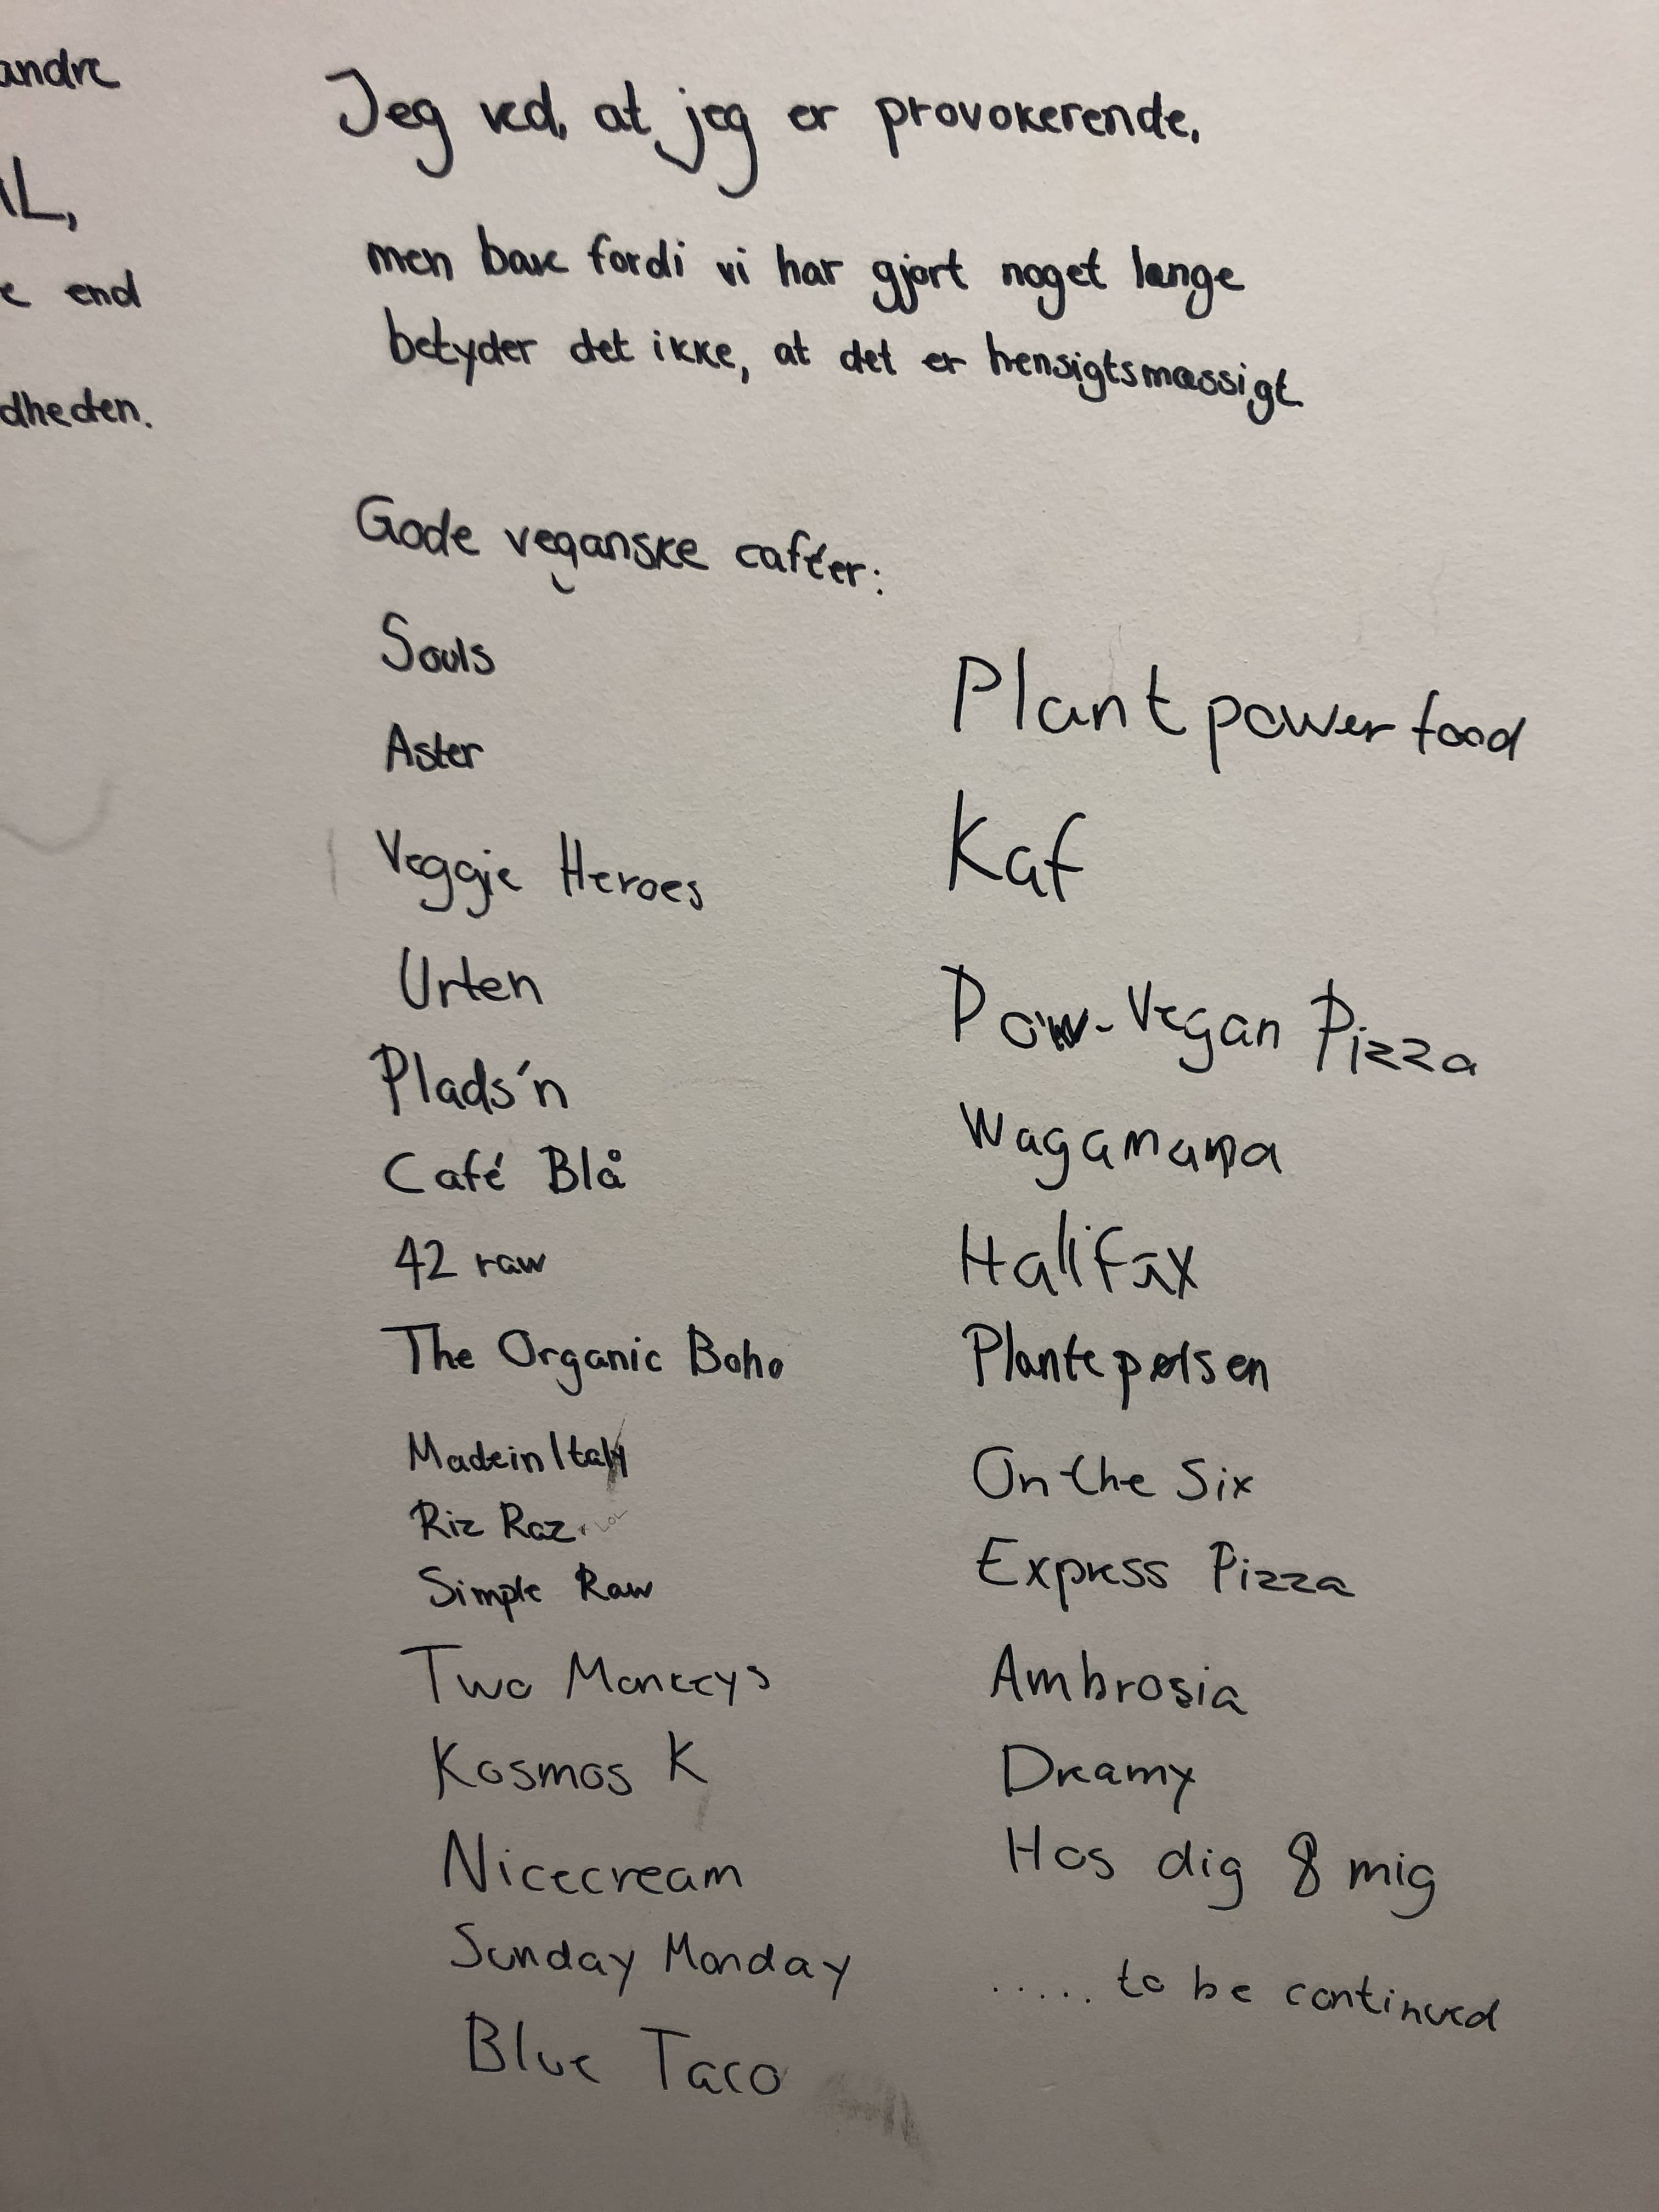 andre
L,
end
dheden.
Jeg ved, at jeg er provokerende,
men bare fordi vi har gjort noget længe
betyder det ikke, at det er hensigtsmæssigt.
Gode veganske caféer:
Souls
Aster
Veggie Heroes
Urten
Plads'n
Café Blå
42 raw
The Organic Boho
Made in Italy
Riz Raz LOL
Simple Raw
Two Monkeys
Kosmos K
Nicecream
Sunday Monday
Blue Taco
Plant power food
Kaf
Pow-Vegan Pizza
Wagamama
Hallifax
Plantepølsen
On the Six
Express Pizza
Ambrosia
Dreamy
Hos dig & mig
..... to be continued